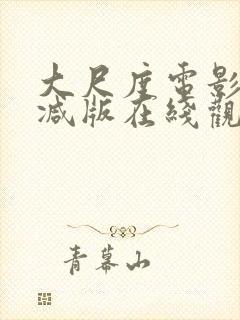 大尺度電影
减版在綫觀
青幕山